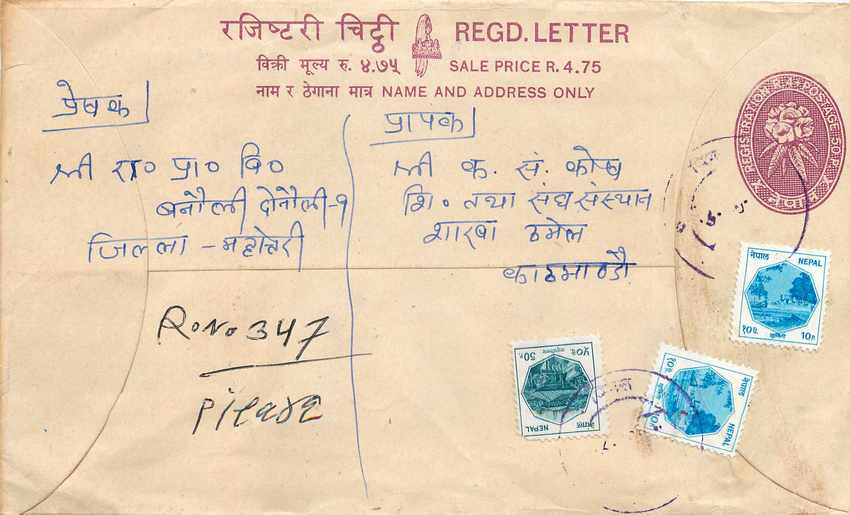 रजिष्टरी चिट्ठी REGD. LETTER
बिक्री मूल्य रु. ४.७५ SALE PRICE R. 4.75
नाम र ठेगाना मात्र NAME AND ADDRESS ONLY
REGISTRATION & POSTAGE 50 P.
प्रेषक
श्री रा० प्रा० वि०
बनौली दोनौली-१
जिल्ला - महोत्तरी
प्रापक
श्री क. सं. कोष
शि० तथा संघ संस्थान
शाखा ठमेल
काठमाण्डौ
R.No 347
Please
नेपाल NEPAL
१०पै. 10P.
५०पै. 50P.
नेपाल NEPAL
१०पै. 10P.
नेपाल NEPAL